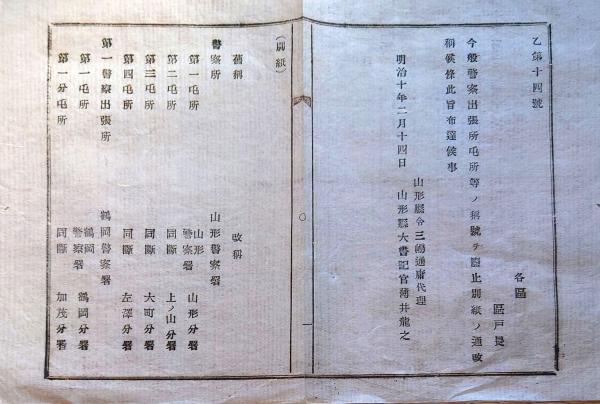 乙第十四號
各區
區戶長
今般警察出張所屯所等ノ稱號ヲ廢止別紙ノ通改
稱候條此旨布達候事
明治十年二月十四日
山形縣令三島通庸代理
山形縣大書記官薄井龍之
(別紙)
舊稱 改稱
警察所 山形警察署
第一屯所 山形警察署 山形分署
第二屯所 同斷 上ノ山分署
第三屯所 同斷 大町分署
第四屯所 同斷 左澤分署
第一警察出張所 鶴岡警察署
第一屯所 鶴岡警察署 鶴岡分署
第一分屯所 同斷 加茂分署